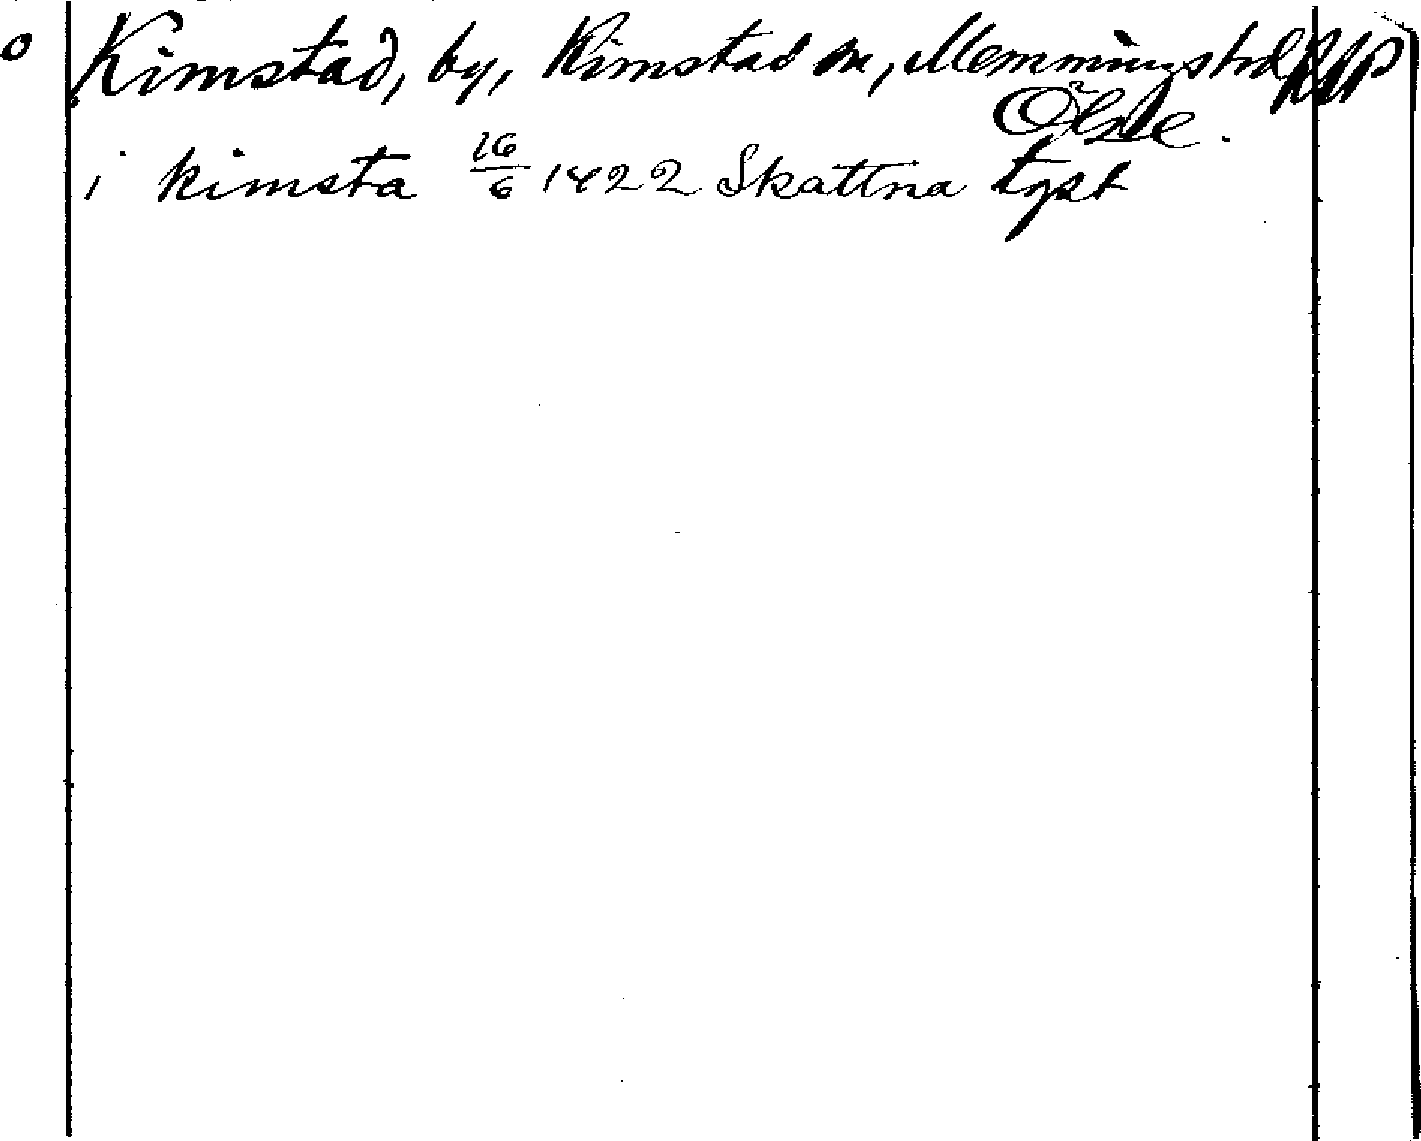 o Kimstad, by, Kimstad sn, Memmings hd
i kimsta 16/6 1422 Skattna tgst